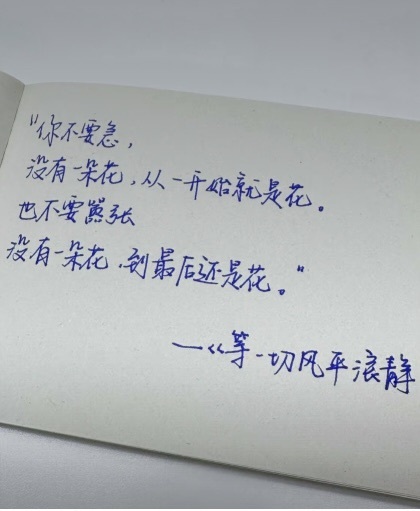 "你不要急，
没有一朵花，从一开始就是花。
也不要嚣张
没有一朵花，到最后还是花。"
—《等一切风平浪静